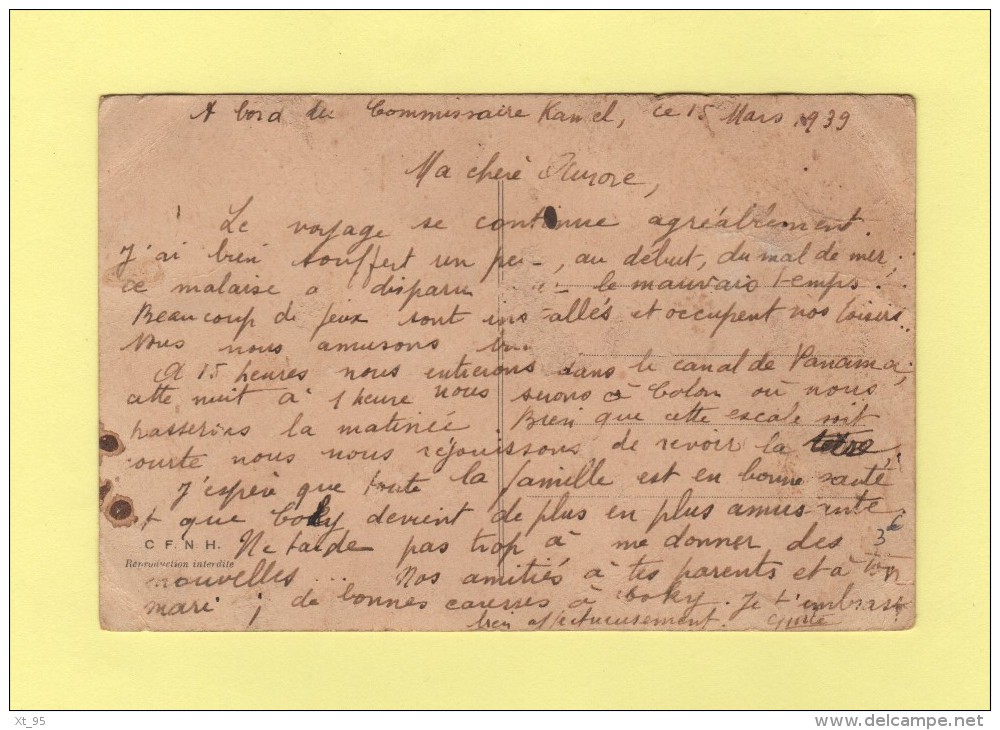 A bord du Commissaire Ramel, ce 15 Mars 1939
Ma chère Aurore,
Le voyage se continue agréablement.
J'ai bien souffert un peu, au début, du mal de mer;
ce malaise a disparu le mauvais temps.
Beaucoup de jeux sont installés et occupent nos loisirs.
Nous nous amusons
A 15 heures nous entrerons dans le canal de Panama;
cette nuit à 1 heure nous serons à Colon où nous
passerons la matinée. Bien que cette escale soit
courte nous nous réjouissons de revoir la terre.
J'espère que toute la famille est en bonne santé
et que Boky devient de plus en plus amusante.
3€
C F. N. H.
Ne tarde pas trop à me donner des
Reproduction interdite
nouvelles... Nos amitiés à tes parents et à ton
mari; de bonnes caresses à Boky. Je t'embrasse
bien affectueusement.
Xt_95
delcampe.net